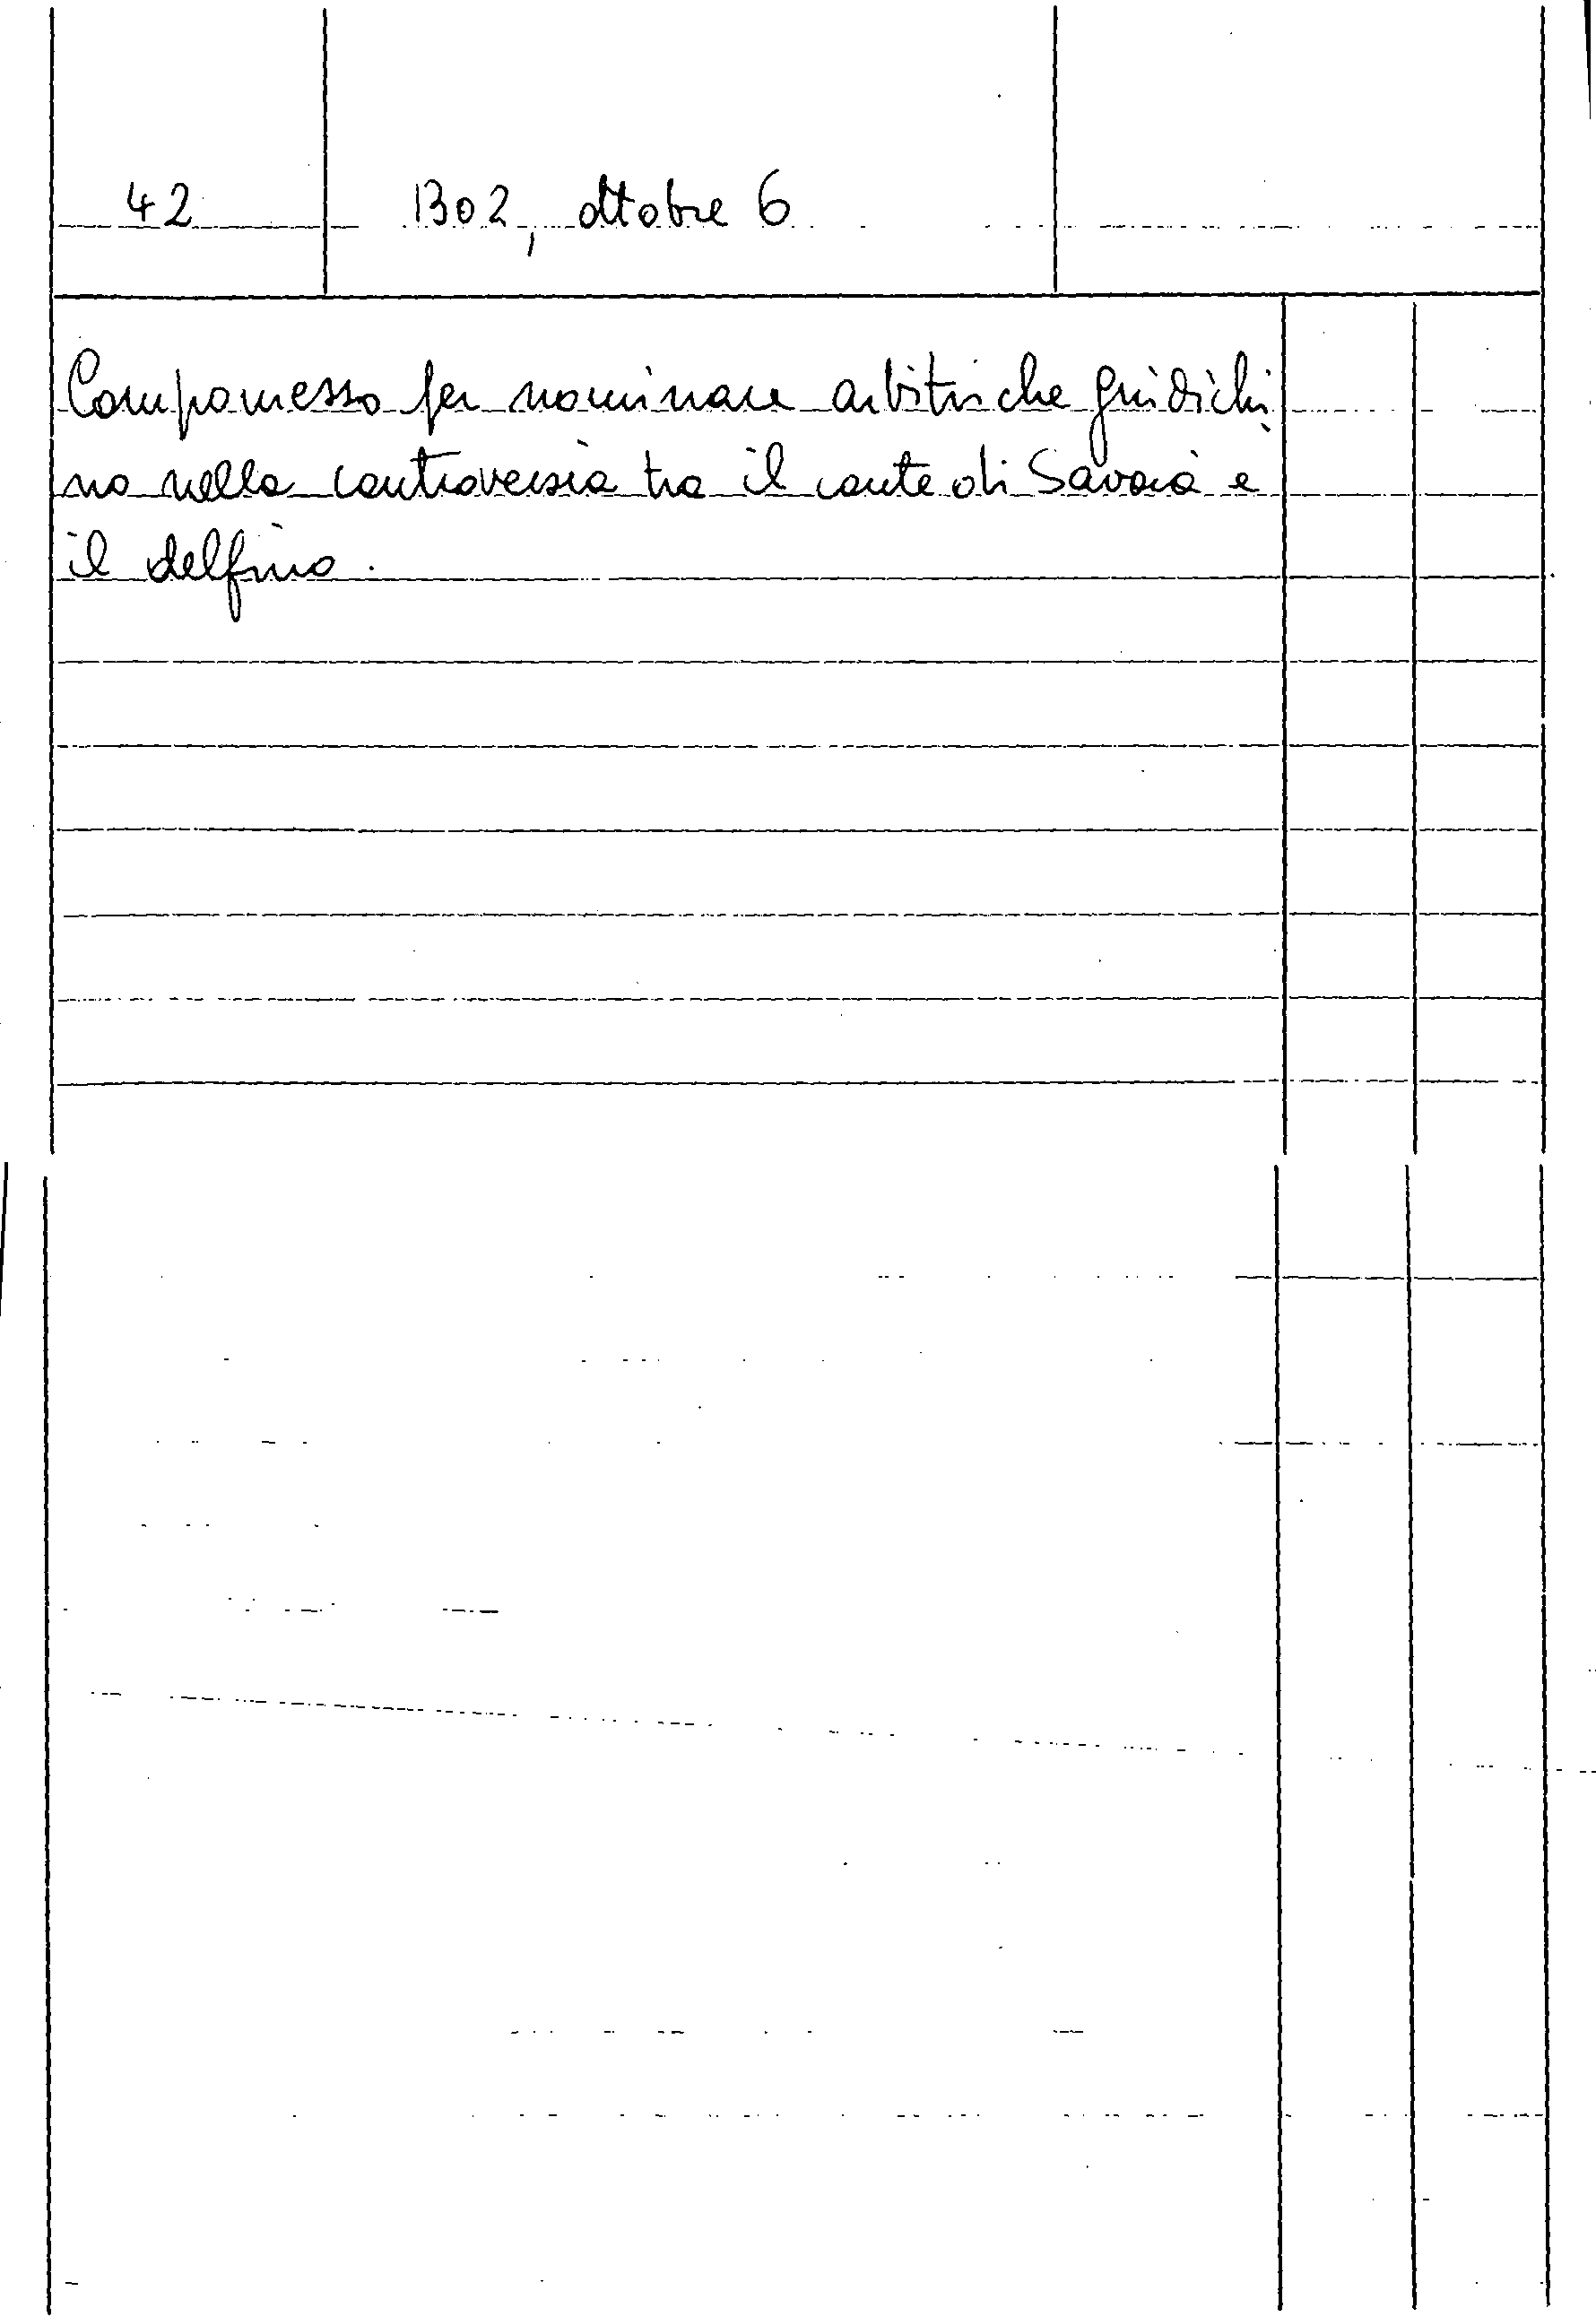 42 1302, ottobre 6
Compromesso per nominare arbitri che giudichi
no nella controversia tra il conte di Savoia e
il delfino.